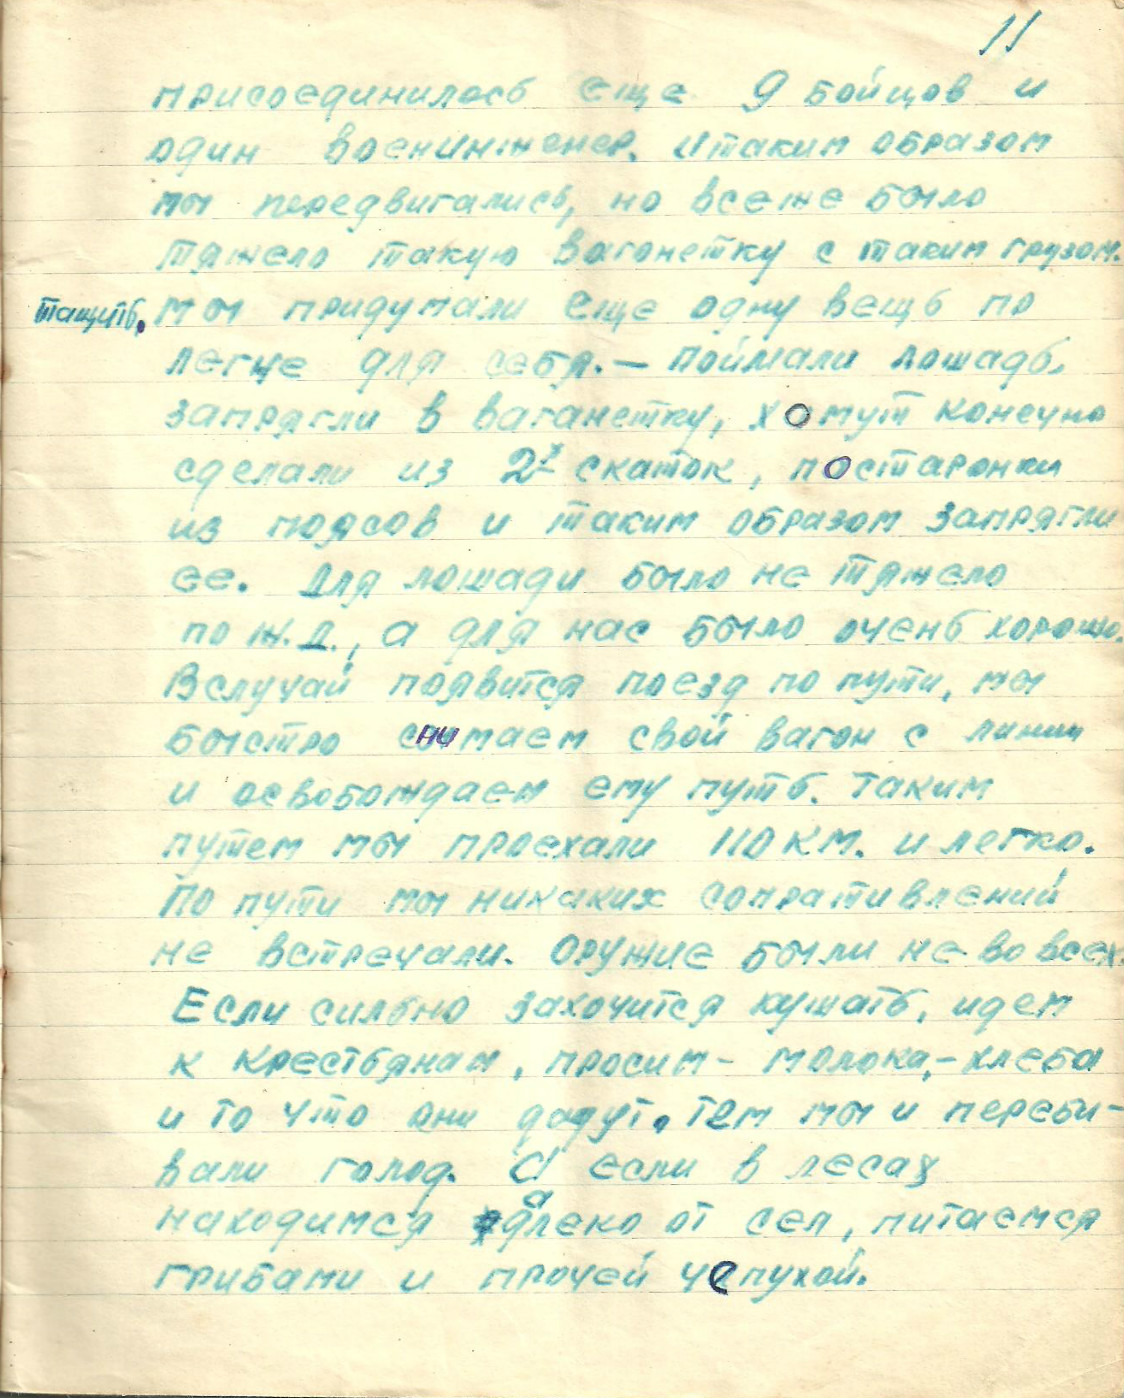 11
присоединилось еще 9 бойцов и
один военинженер. И таким образом
мы передвигались, но всеже было
тяжело такую вагонетку с таким грузом.
тащить, мы придумали еще одну вещь по
легче для себя. – поймали лошадь,
запрягли в ваганетку, хомут конечно
сделали из 2х скаток, постаронки
из поясов и таким образом запрягли
ее. Для лошади было не тяжело
по ж.д., а для нас было очень хорошо.
Вслучай появится поезд по пути, мы
быстро снимаем свой вагон с линии
и освобождаем ему путь. Таким
путем мы проехали 110 км. и легко.
По пути мы никаких сопративлений
не встречали. Оружие были не во всех.
Если сильно захочится кушать, идем
к крестьянам, просим – молока, – хлеба
и то что они дадут, тем мы и переби-
вали голод. А если в лесах
находимся далеко от сел, питаемся
грибами и прочей чепухой.